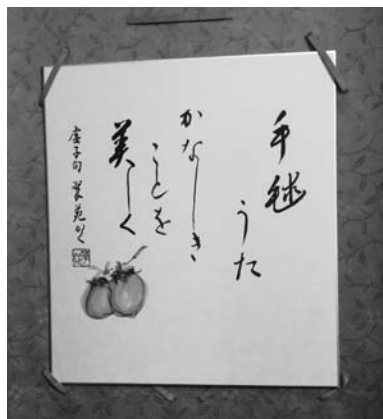 手毬
うた
かなしき
ことを
美しく
虚子句